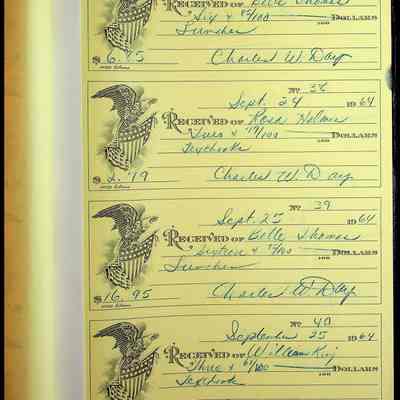 RECEIVED OF Belle Thomas
Six & 95/100 DOLLARS
Lunches
$6.95 Charles W. Day
No. 38
Sept. 24 1964
RECEIVED OF Rosa
Two & 19/100 DOLLARS
Textbooks
$2.19 Charles W. Day
No. 39
Sept. 25 1964
RECEIVED OF Belle Thomas
Sixteen & 95/100 DOLLARS
Lunches
$16.95 Charles W Day
No. 40
September 25 1964
RECEIVED OF William King
Three & /100 DOLLARS
Textbooks